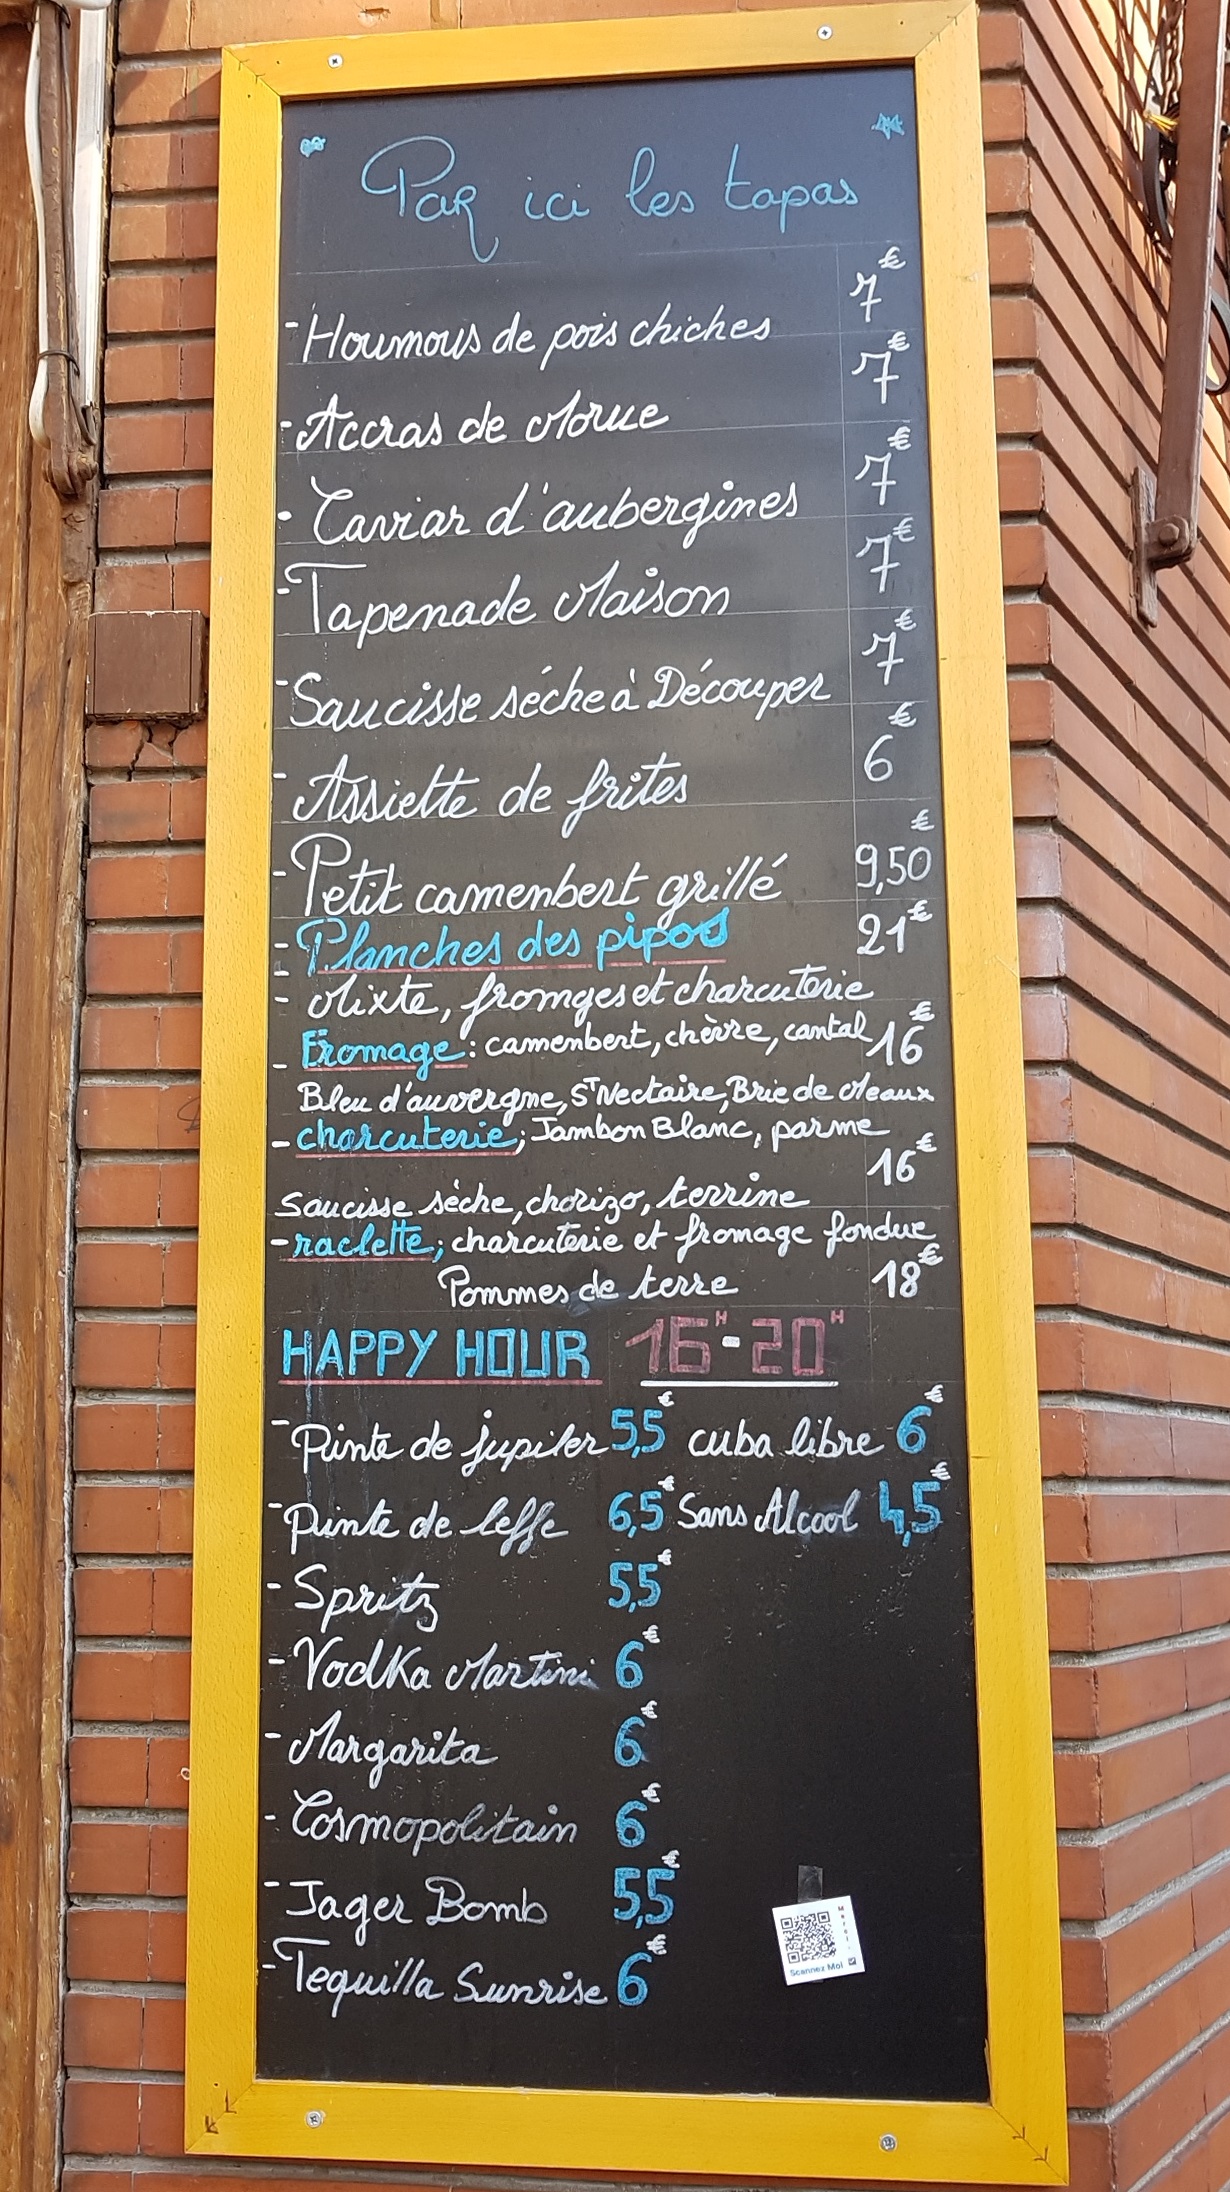 Par ici les tapas
- Houmous de pois chiches 7€
- Accras de Morue 7€
- Caviar d'aubergines 7€
- Tapenade Maison 7€
- Saucisse séche à Découper 7€
- Assiette de frites 6€
- Petit camenbert grillé 9,50€
- Planches des pipos 21€
- Mixte, fromges et charcuterie
- Fromage : camenbert, chèvre, cantal 16€
Bleu d'auvergne, ST Nectaire, Brie de Meaux
- charcuterie; Jambon Blanc, parme
16€
Saucisse sèche, chorizo, terrine
- raclette; charcuterie et fromage fondue
Pommes de terre 18€
HAPPY HOUR 16H-20H
- Pinte de jupiler 5,5€ cuba libre 6€
- pinte de leffe 6,5€ Sans Alcool 4,5€
- Spritz 5,5€
- Vodka Martini 6€
- Margarita 6€
- Cosmopolitain 6€
- Jager Bomb 5,5€
- Tequilla Sunrise 6€
Scannez Moi